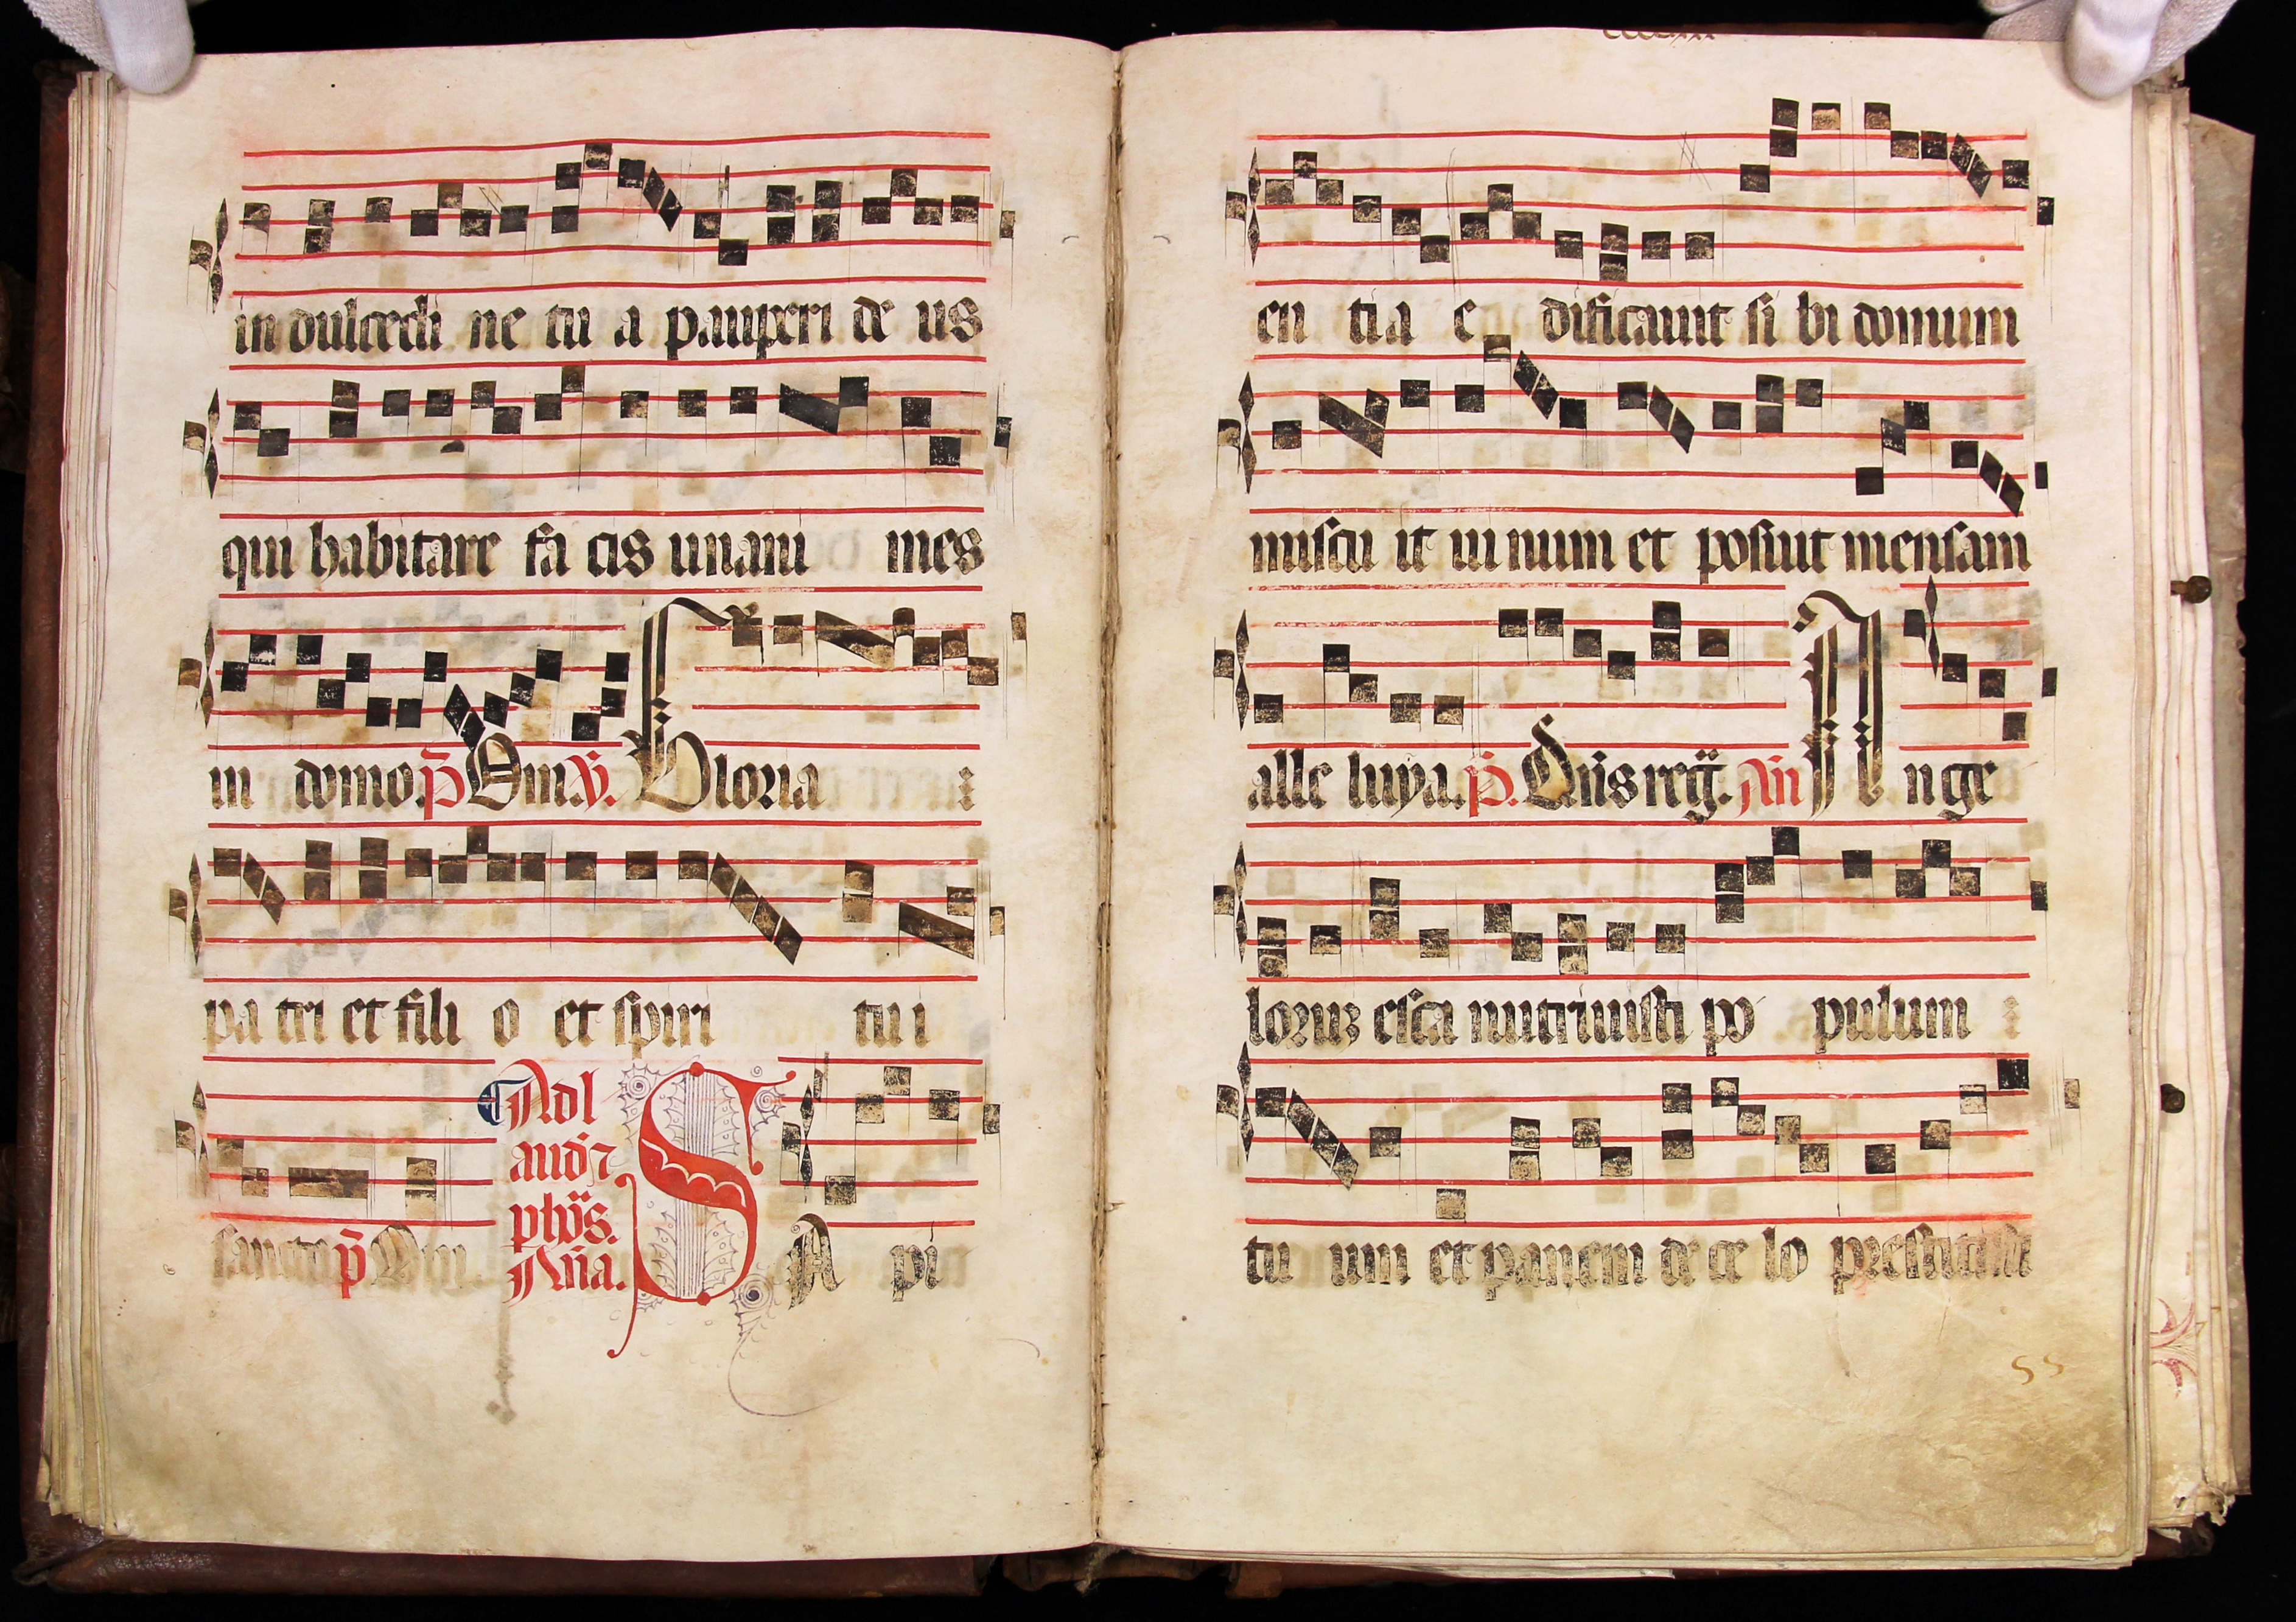 in dulcedi ne tu a pauperi de us
qui habitare fa cis unani mes
in domo. p̄ Qui. ℣. Gloria
pa tri et fili o et spiri tu i
sancto p̄ Qui
Ad l
aud⁊
ph̄s.
Aña.
S A pi
en tia e dificauit si bi domum
miscu it ui num et posuit mensam
alle luya. p̄. Dñs reg̃. Añ A nge
loruꝫ esca nutriuisti po pulum
tu um et panem de ce lo prestitisti
55